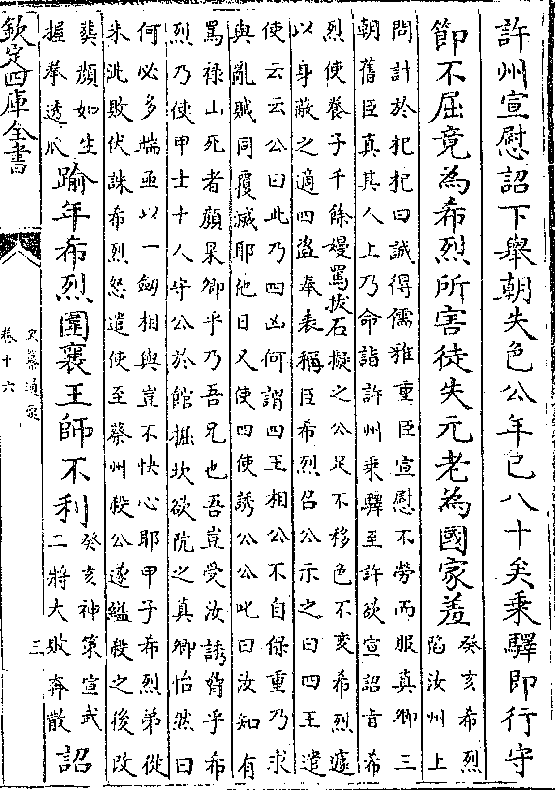 許州宣慰詔下舉朝失色公年已八十矣乘驛即行守
節不屈竟為希烈所害徒失元老為國家羞
癸亥希烈
陷汝州上
問計於杞杞曰誠得儒雅重臣宣慰不勞而服真卿三
朝舊臣真其人上乃命詣許州乘驛至許欲宣詔旨希
烈使養子千餘嫚罵拔石擬之公足不移色不亥希烈遽
以身蔽之適四盗奉表稱臣希烈召公示之曰四王遣
使云云公曰此乃四凶何謂四王相公不自保重乃求
與亂賊同覆滅耶他日又使四使誘公公叱曰汝知有
罵禄山死者顔杲卿乎乃吾兄也吾豈受汝誘脅乎希
烈乃使甲士十人守公於館掘坎欲阬之真卿怡然曰
何必多端亟以一劒相與豈不快心耶甲子希烈弟從
朱泚敗伏誅希烈怒遣使至蔡州殺公遂縊殺之後改
葬顔如生
握拳透爪
踰年希烈圍襄王師不利
癸亥神策宣武
二將大敗奔散
詔
欽定四庫全書
卷十六
三